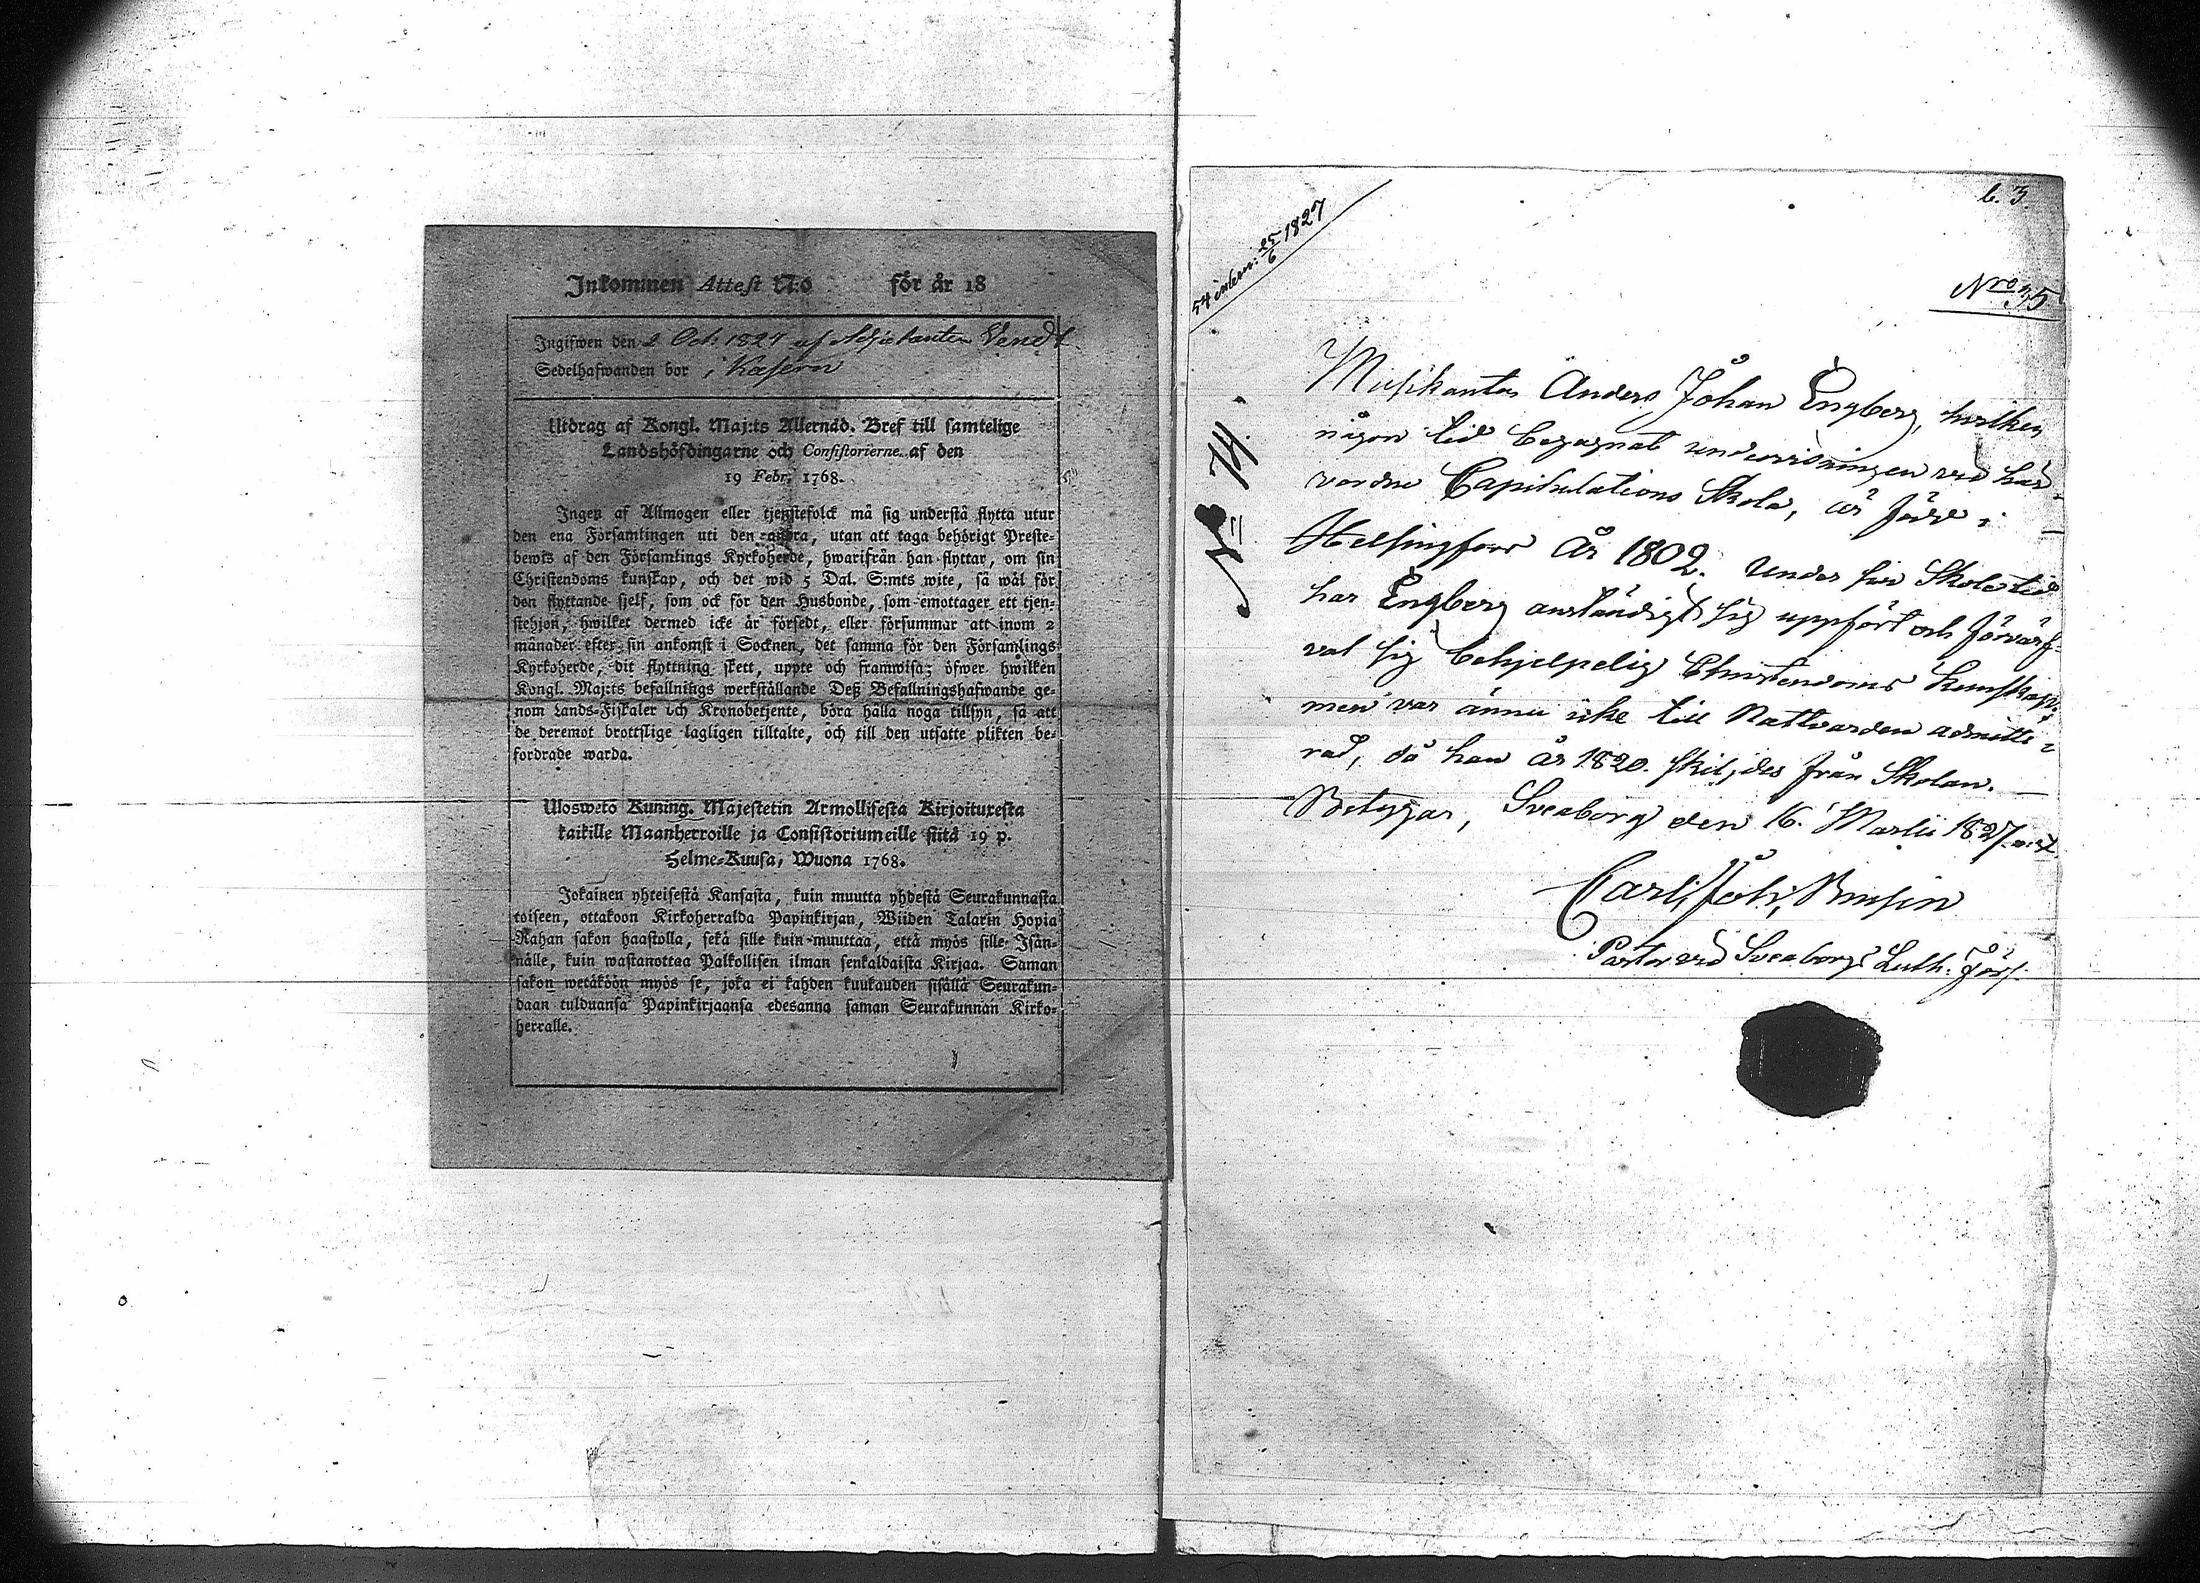 Inkommen Attest N:o för år 18
Ingifwen den 2 Oct. 1827 af Adjutanten Vendt
Sedelhafwanden bor i Kasern
Utdrag af Kongl. Maj:ts Allernåd. Bref till samtelige
Landshöfdingarne och Consistorierne af den
19 Febr. 1768.
Ingen af Allmogen eller tjenstefolck må sig understå flytta utur
den ena Församlingen uti den andra, utan att taga behörigt Preste-
bewis af den Församlings Kyrkoherde, hwarifrån han flyttar, om sin
Christendoms kunskap, och det wid 5 Dal. S:mts wite, så wäl för
den flyttande sjelf, som ock för den Husbonde, som emottager ett tjen-
stehjon, hwilket dermed icke är försedt, eller försummar att inom 2
månader efter sin ankomst i Socknen, det samma för den Församlings
Kyrkoherde, dit flyttning skett, uppte och framwisa; öfwer hwilken
Kongl. Maj:ts befallnings werkställande Deß Befallningshafwande ge-
nom Lands-Fiskaler och Kronobetjente, böra hålla noga tillsyn, så att
de deremot brottslige lagligen tilltalte, och till den utsatte plikten be-
fordrade warda.
Ulosweto Kuning. Majestetin Armollisesta Kirjoituxesta
kaikille Maanherroille ja Consistoriumeille siitä 19 p.
Helme-Kuusa, Wuona 1768.
Jokainen yhteisestä Kansasta, kuin muutta yhdestä Seurakunnasta
toiseen, ottakoon Kirkoherralda Papinkirjan, Wiiden Talarin Hopia
Rahan sakon haastolla, sekä sille kuin muuttaa, että myös sille Isän-
nälle, kuin wastanottaa Palkollisen ilman senkaldaista Kirjaa. Saman
sakon wetäköön myös se, joka ei kahden kuukauden sisällä Seurakun-
daan tulduansa Papinkirjaansa edesanna saman Seurakunnan Kirko-
herralle.
b. 3.
54 inkom: 25/6 1827
Nro 35
N:o 74.
Musikanten Anders Johan Engberg, hvilken
någon tid begagnat undervisningen vid här
varande Capitulations Skola, är född i
Helsingfors År 1802. Under sin Skoletid
har Engberg anständigt sig uppfört och förvärf-
vat sig behjelpelig Christendoms Kunskap;
men var ännu icke till Nattvarden admitte-
rad, då han år 1820. skiljdes från Skolan. —
Betygar, Sveaborg den 16. Martii 1827.
Carl Joh.
Pastor vid Sveaborgs Luth: Förs.